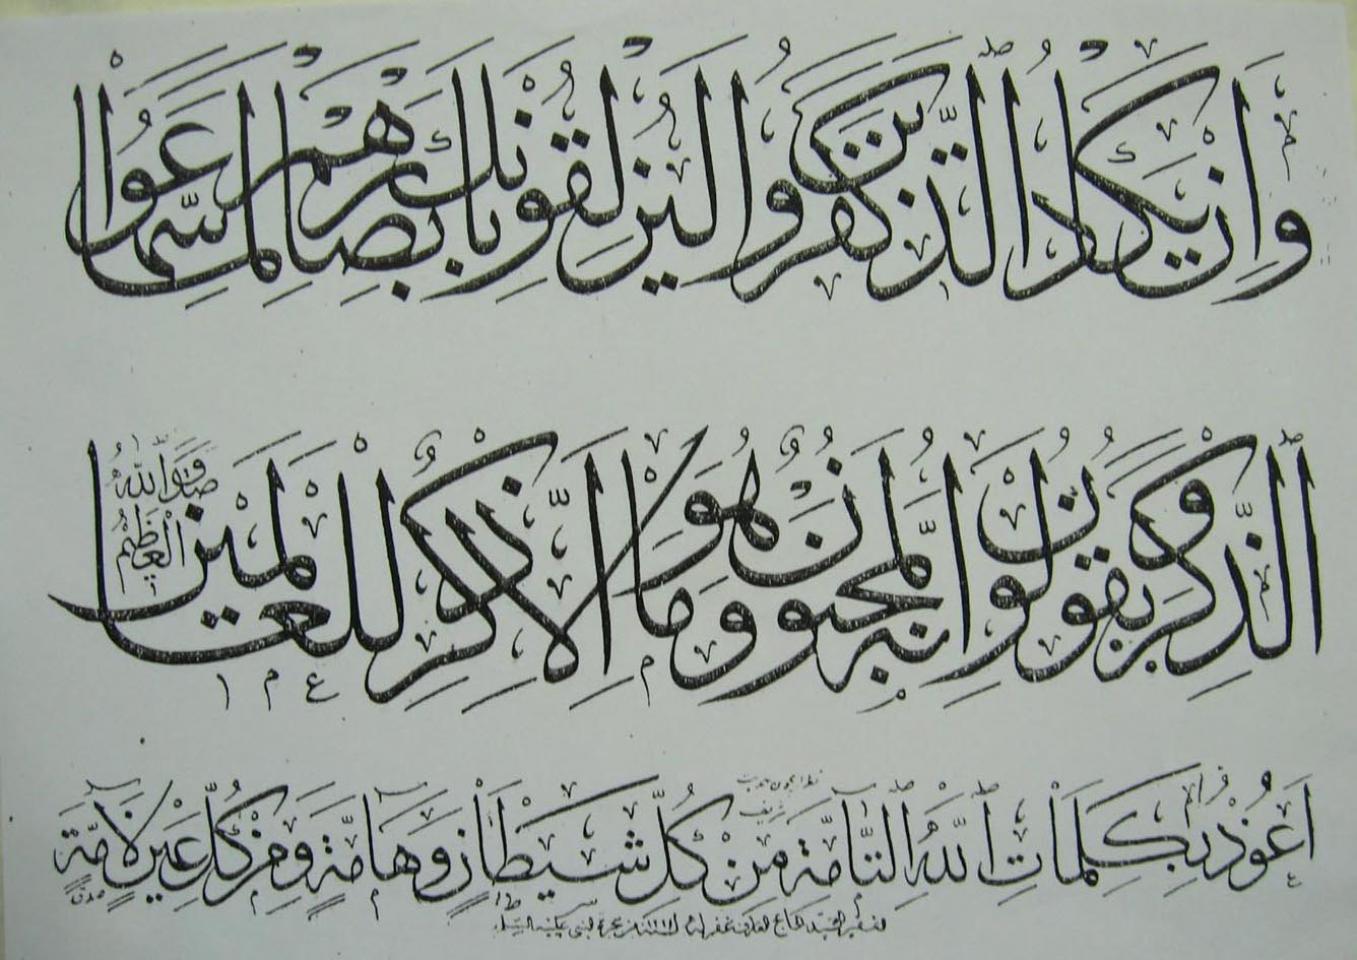 وَإِنْ يَكَادُ الَّذِينَ كَفَرُوا لَيُزْلِقُونَكَ بِأَبْصَارِهِمْ لَمَّا سَمِعُوا
الذِّكْرَ وَيَقُولُونَ إِنَّهُ لَمَجْنُونٌ وَمَا هُوَ إِلَّا ذِكْرٌ لِلْعَالَمِينَ
صَدَقَ اللهُ الْعَظِيمُ
أَعُوذُ بِكَلِمَاتِ اللهِ التَّامَّةِ مِنْ كُلِّ شَيْطَانٍ وَهَامَّةٍ وَمِنْ كُلِّ عَيْنٍ لَامَّةٍ